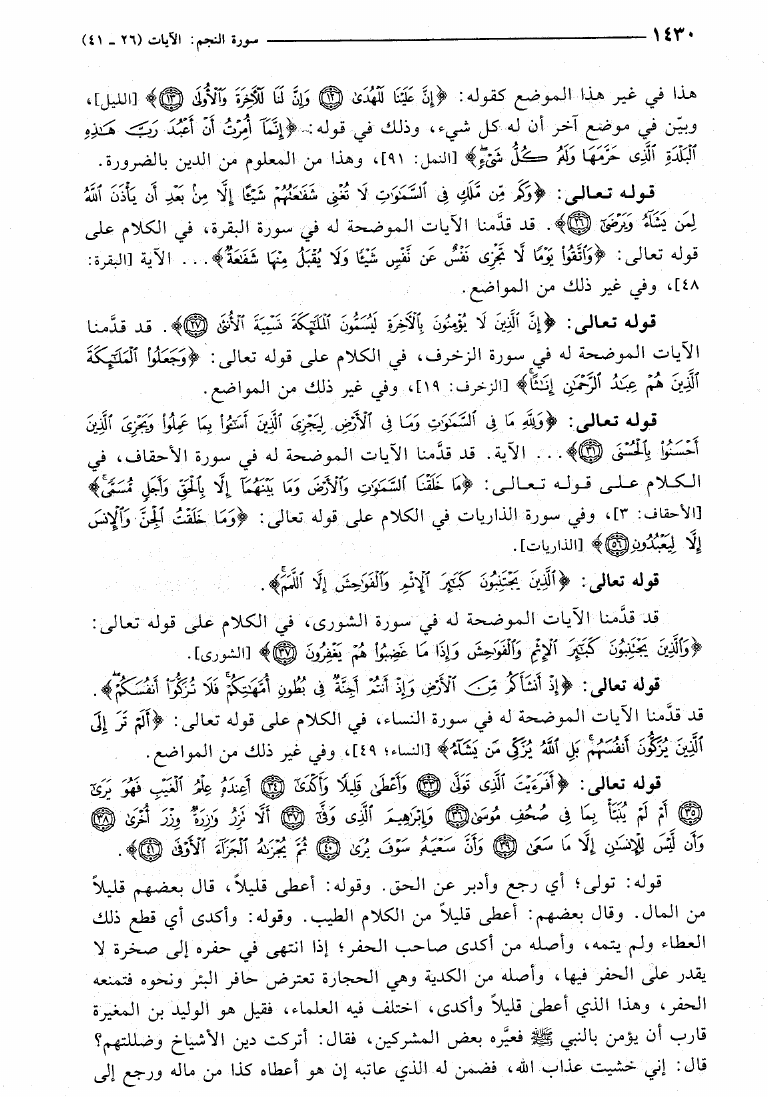 ١٤٣٠ سورة النجم: الآيات (٢٦ - ٤١)
هذا في غير هذا الموضع كقوله: ﴿إِنَّ عَلَيْنَا لَلْهُدَىٰ ١٢ وَإِنَّ لَنَا لَلْآخِرَةَ وَالْأُولَىٰ ١٣﴾ [الليل]،
وبيّن في موضع آخر أن له كل شيء، وذلك في قوله: ﴿إِنَّمَا أُمِرْتُ أَنْ أَعْبُدَ رَبَّ هَٰذِهِ
الْبَلْدَةِ الَّذِي حَرَّمَهَا وَلَهُ كُلُّ شَيْءٍ﴾ [النمل: ٩١]، وهذا من المعلوم من الدين بالضرورة.
قوله تعالى: ﴿وَكَم مِّن مَّلَكٍ فِي السَّمَاوَاتِ لَا تُغْنِي شَفَاعَتُهُمْ شَيْئًا إِلَّا مِن بَعْدِ أَن يَأْذَنَ اللَّهُ
لِمَن يَشَاءُ وَيَرْضَىٰ ٢٦﴾. قد قدَّمنا الآيات الموضحة له في سورة البقرة، في الكلام على
قوله تعالى: ﴿وَاتَّقُوا يَوْمًا لَّا تَجْزِي نَفْسٌ عَن نَّفْسٍ شَيْئًا وَلَا يُقْبَلُ مِنْهَا شَفَاعَةٌ﴾... الآية [البقرة:
٤٨]، وفي غير ذلك من المواضع.
قوله تعالى: ﴿إِنَّ الَّذِينَ لَا يُؤْمِنُونَ بِالْآخِرَةِ لَيُسَمُّونَ الْمَلَائِكَةَ تَسْمِيَةَ الْأُنثَىٰ ٢٧﴾. قد قدَّمنا
الآيات الموضحة له في سورة الزخرف، في الكلام على قوله تعالى: ﴿وَجَعَلُوا الْمَلَائِكَةَ
الَّذِينَ هُمْ عِبَادُ الرَّحْمَٰنِ إِنَاثًا﴾ [الزخرف: ١٩]، وفي غير ذلك من المواضع.
قوله تعالى: ﴿وَلِلَّهِ مَا فِي السَّمَاوَاتِ وَمَا فِي الْأَرْضِ لِيَجْزِيَ الَّذِينَ أَسَاءُوا بِمَا عَمِلُوا وَيَجْزِيَ الَّذِينَ
أَحْسَنُوا بِالْحُسْنَى ٣١﴾... الآية. قد قدَّمنا الآيات الموضحة له في سورة الأحقاف، في
الكلام على قوله تعالى: ﴿مَا خَلَقْنَا السَّمَاوَاتِ وَالْأَرْضَ وَمَا بَيْنَهُمَا إِلَّا بِالْحَقِّ وَأَجَلٍ مُّسَمًّى﴾
[الأحقاف: ٣]، وفي سورة الذاريات في الكلام على قوله تعالى: ﴿وَمَا خَلَقْتُ الْجِنَّ وَالْإِنسَ
إِلَّا لِيَعْبُدُونِ ٥٦﴾ [الذاريات].
قوله تعالى: ﴿الَّذِينَ يَجْتَنِبُونَ كَبَائِرَ الْإِثْمِ وَالْفَوَاحِشَ إِلَّا اللَّمَمَ﴾.
قد قدَّمنا الآيات الموضحة له في سورة الشورى، في الكلام على قوله تعالى:
﴿وَالَّذِينَ يَجْتَنِبُونَ كَبَائِرَ الْإِثْمِ وَالْفَوَاحِشَ وَإِذَا مَا غَضِبُوا هُمْ يَغْفِرُونَ ٣٧﴾ [الشورى].
قوله تعالى: ﴿إِذْ أَنشَأَكُم مِّنَ الْأَرْضِ وَإِذْ أَنتُمْ أَجِنَّةٌ فِي بُطُونِ أُمَّهَاتِكُمْ فَلَا تُزَكُّوا أَنفُسَكُمْ﴾.
قد قدَّمنا الآيات الموضحة له في سورة النساء، في الكلام على قوله تعالى: ﴿أَلَمْ تَرَ إِلَى
الَّذِينَ يُزَكُّونَ أَنفُسَهُم بَلِ اللَّهُ يُزَكِّي مَن يَشَاءُ﴾ [النساء؛ ٤٩]، وفي غير ذلك من المواضع.
قوله تعالى: ﴿أَفَرَأَيْتَ الَّذِي تَوَلَّىٰ ٣٣ وَأَعْطَىٰ قَلِيلًا وَأَكْدَىٰ ٣٤ أَعِندَهُ عِلْمُ الْغَيْبِ فَهُوَ يَرَىٰ
٣٥ أَمْ لَمْ يُنَبَّأْ بِمَا فِي صُحُفِ مُوسَىٰ ٣٦ وَإِبْرَاهِيمَ الَّذِي وَفَّىٰ ٣٧ أَلَّا تَزِرُ وَازِرَةٌ وِزْرَ أُخْرَىٰ ٣٨
وَأَن لَّيْسَ لِلْإِنسَانِ إِلَّا مَا سَعَىٰ ٣٩ وَأَنَّ سَعْيَهُ سَوْفَ يُرَىٰ ٤٠ ثُمَّ يُجْزَاهُ الْجَزَاءَ الْأَوْفَىٰ ٤١﴾.
قوله: تولى؛ أي رجع وأدبر عن الحق. وقوله: أعطى قليلاً، قال بعضهم قليلاً
من المال. وقال بعضهم: أعطى قليلاً من الكلام الطيب. وقوله: وأكدى أي قطع ذلك
العطاء ولم يتمه، وأصله من أكدى صاحب الحفر؛ إذا انتهى في حفره إلى صخرة لا
يقدر على الحفر فيها، وأصله من الكدية وهي الحجارة تعترض حافر البئر ونحوه فتمنعه
الحفر، وهذا الذي أعطى قليلاً وأكدى، اختلف فيه العلماء، فقيل هو الوليد بن المغيرة
قارب أن يؤمن بالنبي ﷺ فعيَّره بعض المشركين، فقال: أتركت دين الأشياخ وضللتهم؟
قال: إني خشيت عذاب الله، فضمن له الذي عاتبه إن هو أعطاه كذا من ماله ورجع إلى